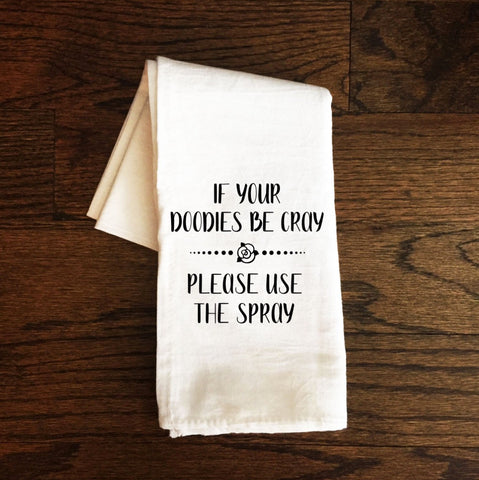 IF YOUR
DOODIES BE CRAY
PLEASE USE
THE SPRAY